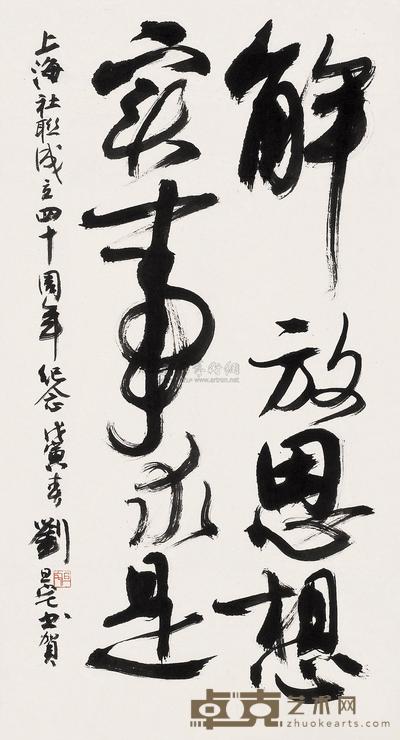 解放思想
实事求是
上海社聯成立四十周年纪念 戊寅春 劉旦宅书賀
www.artron.net
卓克艺术网
zhuokearts.com